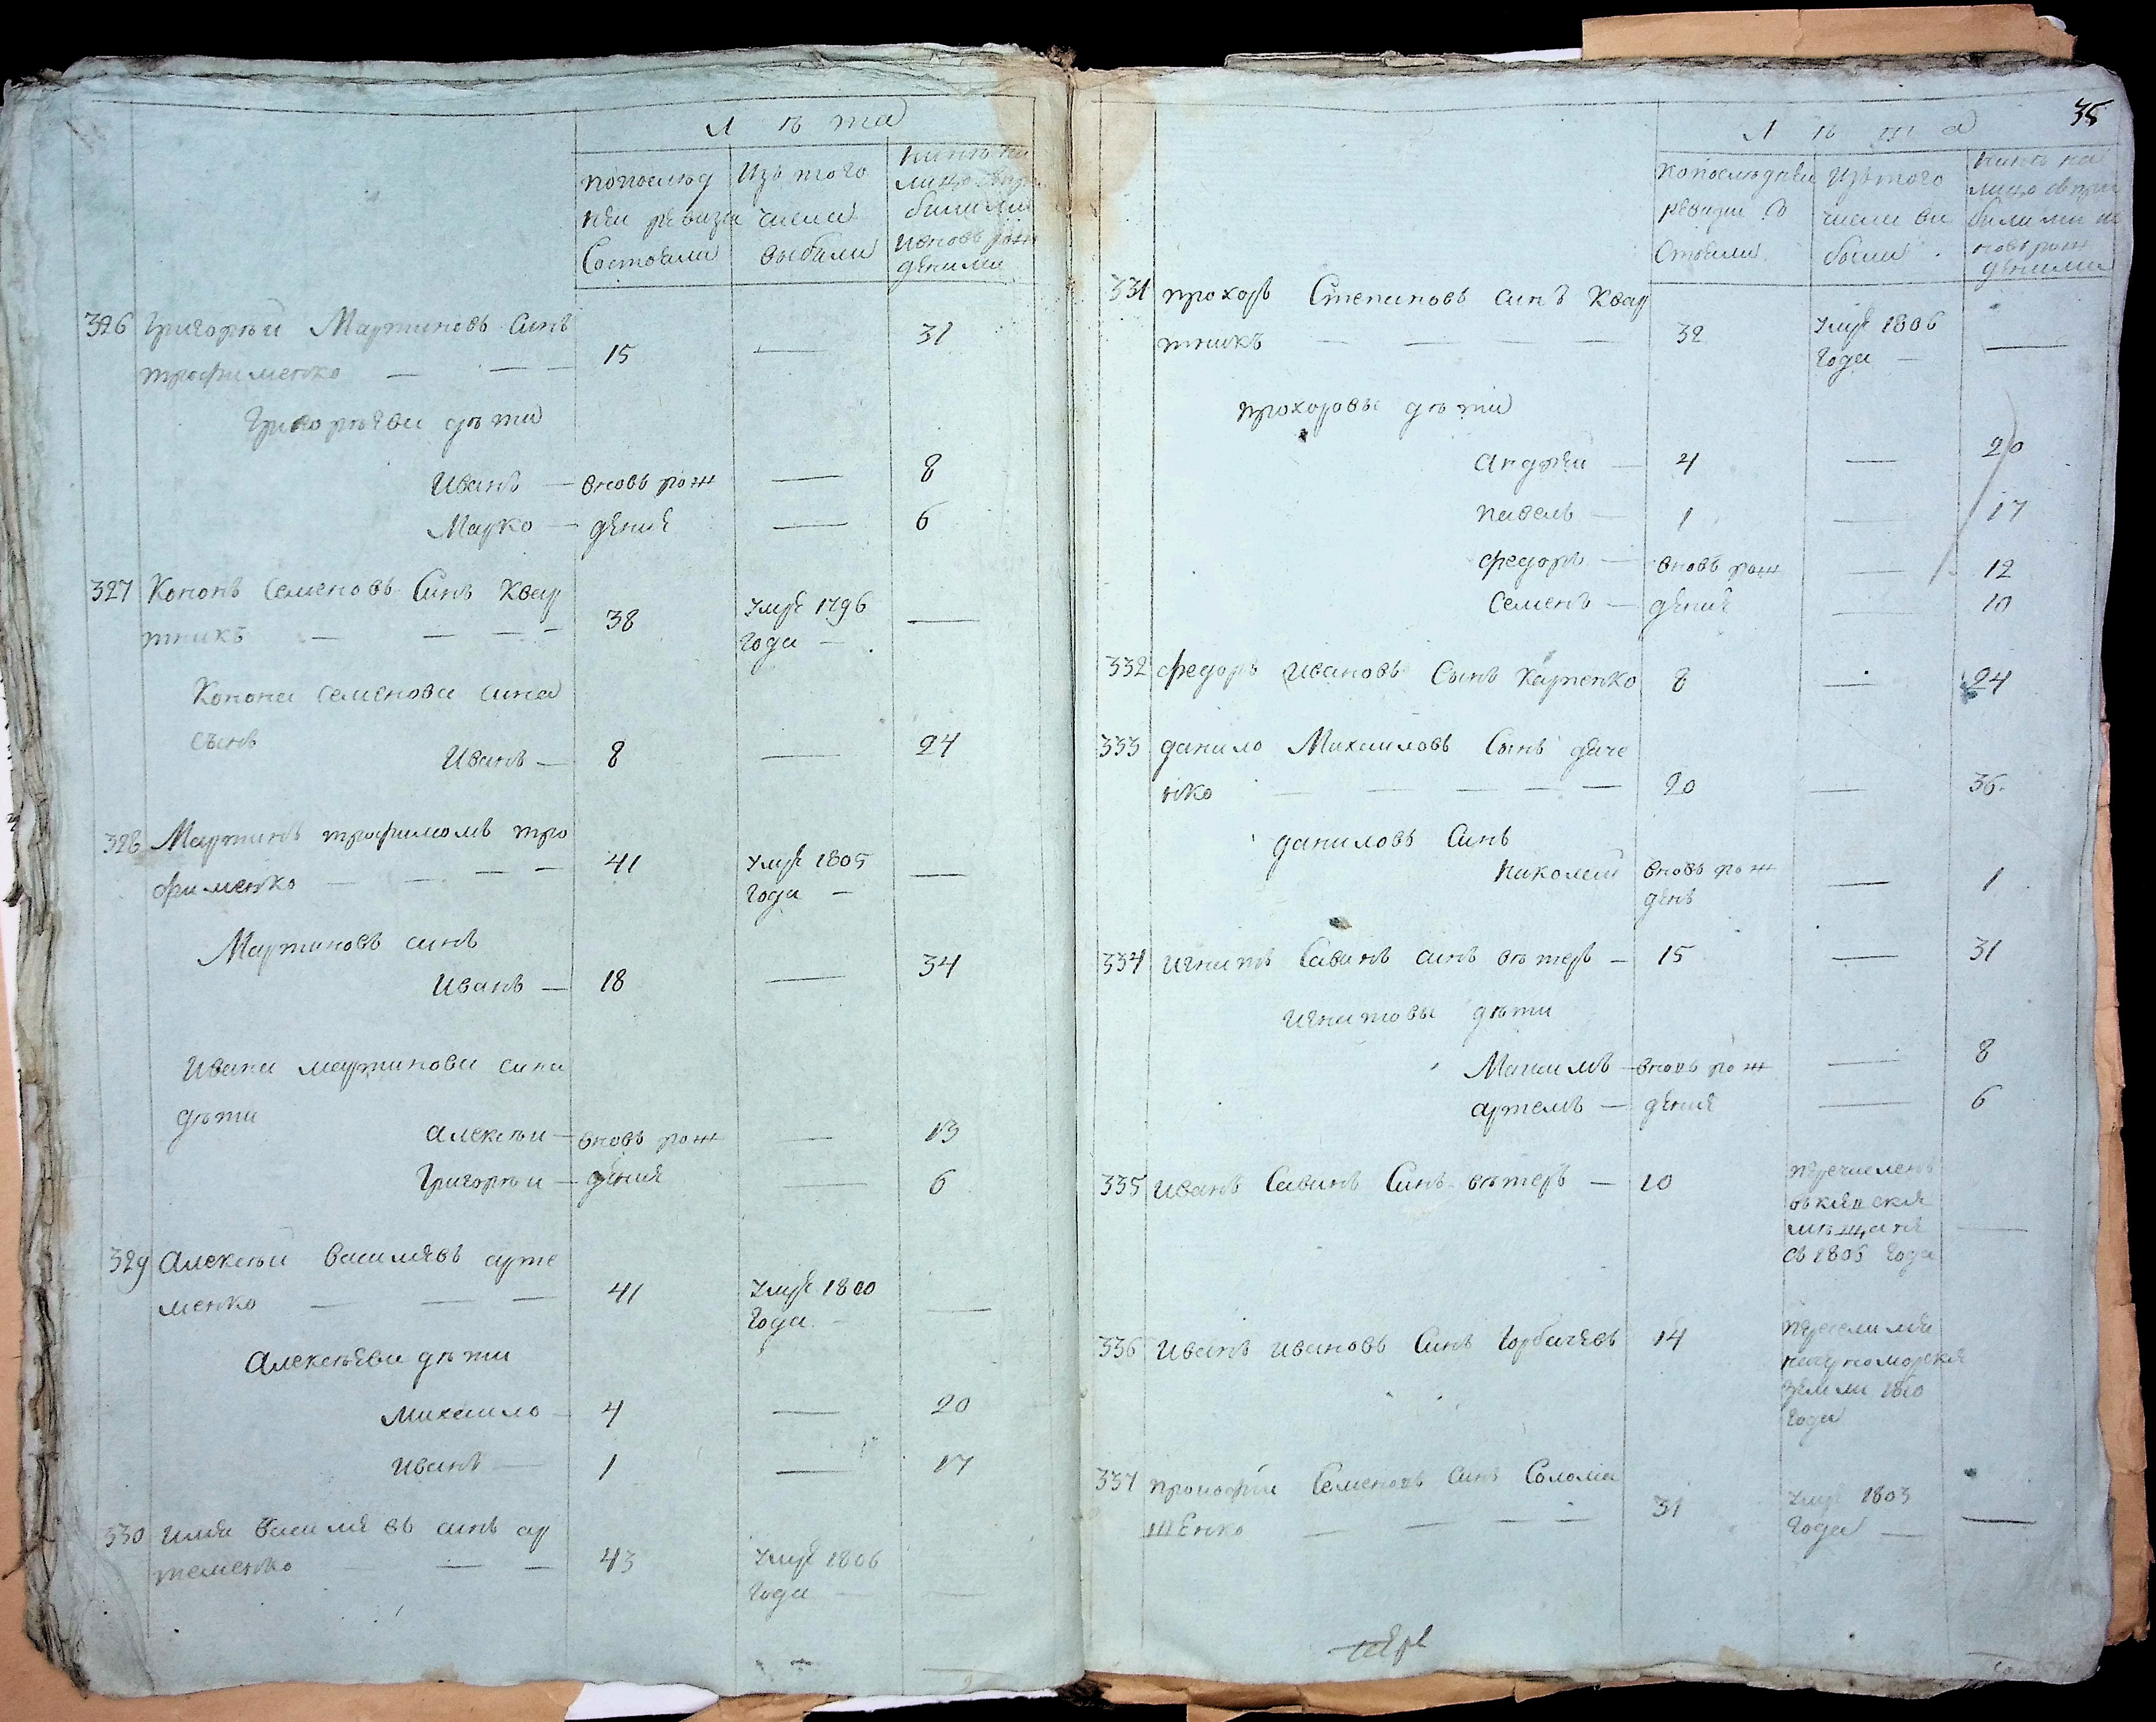 Лѣта
попослед ней ревизи Состояли
Изъ того числа выбыли
Нынѣ на лицо вновь рожденими
326 Григорѣи Мартиновъ Синъ
трофименко — — — 15 — 31
Григорѣеви дѣти
Иванъ — вновь рож — 8
Марко — дение — 6
327 Кононъ Семеновъ Синъ Квар
тникъ — — — — 38 Умре 1796 —
года —
Конона Семенова сина
сынъ
Иванъ — 8 — 24
328 Мартинъ трофимовъ тро
фименко — — — — 41 Умре 1805 —
года —
Мартиновъ синъ
Иванъ — 18 — 34
Ивана мартинова сина
дѣти
алексѣи — вновь рож — 13
Григорѣи — дения — 6
329 Алексѣи Василиевъ арте
менко — — — 41 Умре 1800 —
года —
Алексѣеви дѣти
Михаило — 4 — 20
Иванъ — 1 — 17
330 Илия Василиевъ синъ ар
теменко — — 43 Умре 1806
года — —
35
Лѣта
Попоследнеи ревизии состояли
Изъ того числа выбыли
Нынѣ на лицо съ при былими и новь рож дениими
331 прохоръ Степановъ синъ Квар
тникъ — — — — 32 Умре 1806 —
года —
Прохоровы дѣти
Андреи — 4 — 20
Павелъ — 1 — 17
Федоръ — вновь рож — 12
Семенъ — дение — 10
332 Федоръ Ивановъ Сынъ Карпенко 8 — 24
333 данило Михаиловъ Сынъ дяче
нко — — — — — 20 — 36
даниловъ Синъ
Николаи вновь рож — 1
денъ
334 Игнатъ Савинъ синъ вѣтеръ — 15 — 31
Игнатовы дѣти
Максимъ — вновь рож — 8
артемъ — дение — 6
335 Иванъ Савинъ Синъ вѣтеръ — 10 перечисленъ
мѣщане —
съ 1805 года
336 Иванъ Ивановъ Синъ Горбачевъ 14
начерноморския
земли 1810
года
337 Прокофии Семеновъ Синъ Солома
шенко — — — — 31 Умре 1803 —
года —